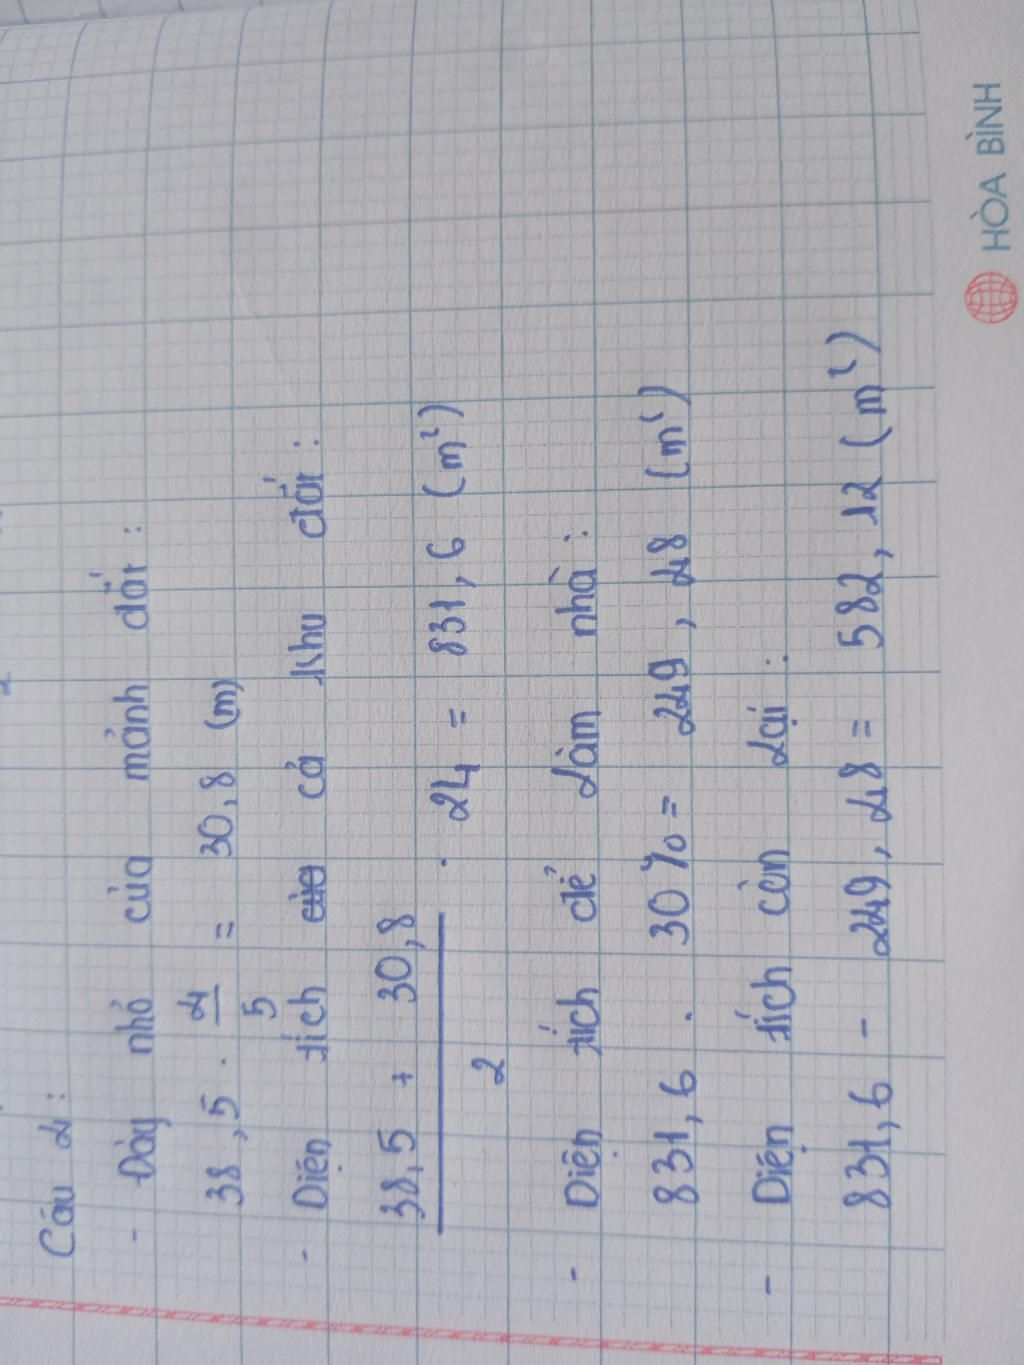 Câu 4:
- Đáy nhỏ của mảnh đất:
38,5 . 4/5 = 30,8 (m)
- Diện tích của cả khu đất:
38,5 + 30,8 / 2 . 24 = 831,6 (m²)
- Diện tích để làm nhà:
831,6 . 30% = 249,48 (m²)
- Diện tích còn lại:
831,6 - 249,48 = 582,12 (m²)
HÒA BÌNH